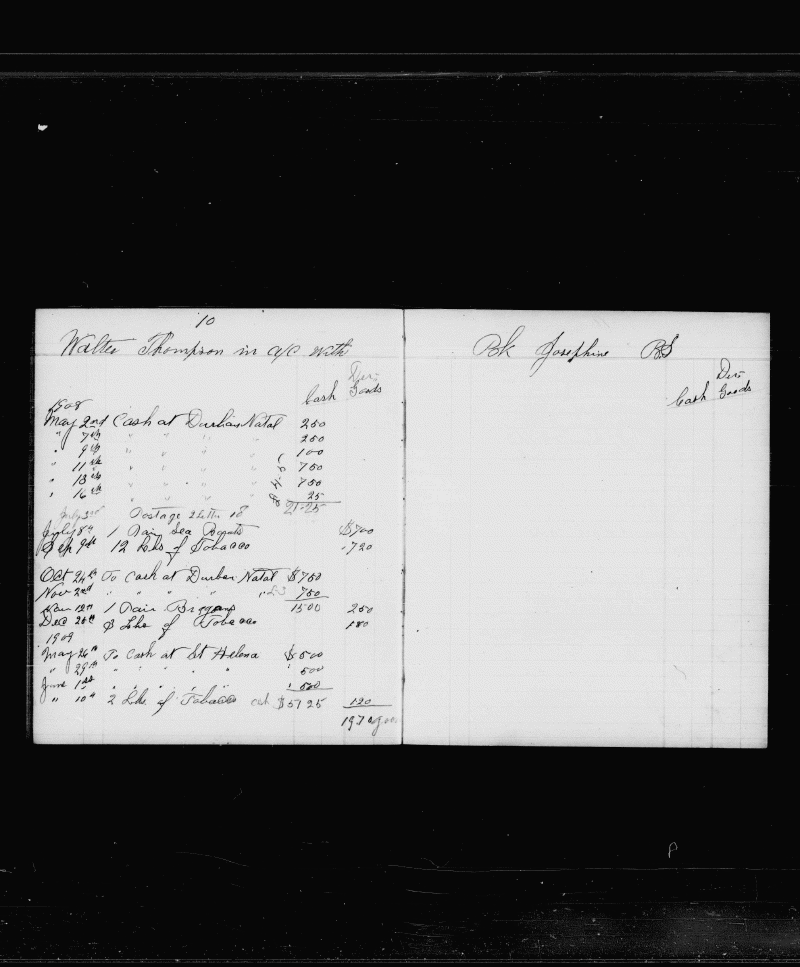 10
Walter Thompson in a/c with
Divs
Cash Goods
1908
May 2nd Cash at Durban Natal 250
" 7th " " " " 250
" 9th " " " " 100
" 11th " " " " 750
" 13th " " " " 750
" 16th " " " " 25
21.25
July 3rd Postage 2 Letters 18
July 8th 1 Pair Sea Boots $700
Sep 9th 12 Lbs of Tobacco 720
Oct 24th To Cash at Durban Natal $750
Nov 2nd " " " " £3 750
1 Pair Brogans 1500 250
Dec 25th 3 Lbs of Tobacco 180
1909
May 26th To Cash at St Helena $500
" 29th " " " " 500
June 1st " " " " 500
" 10th 2 Lbs. of Tobacco cash $51 25 120
Bk Josephine
Divs
Cash Goods